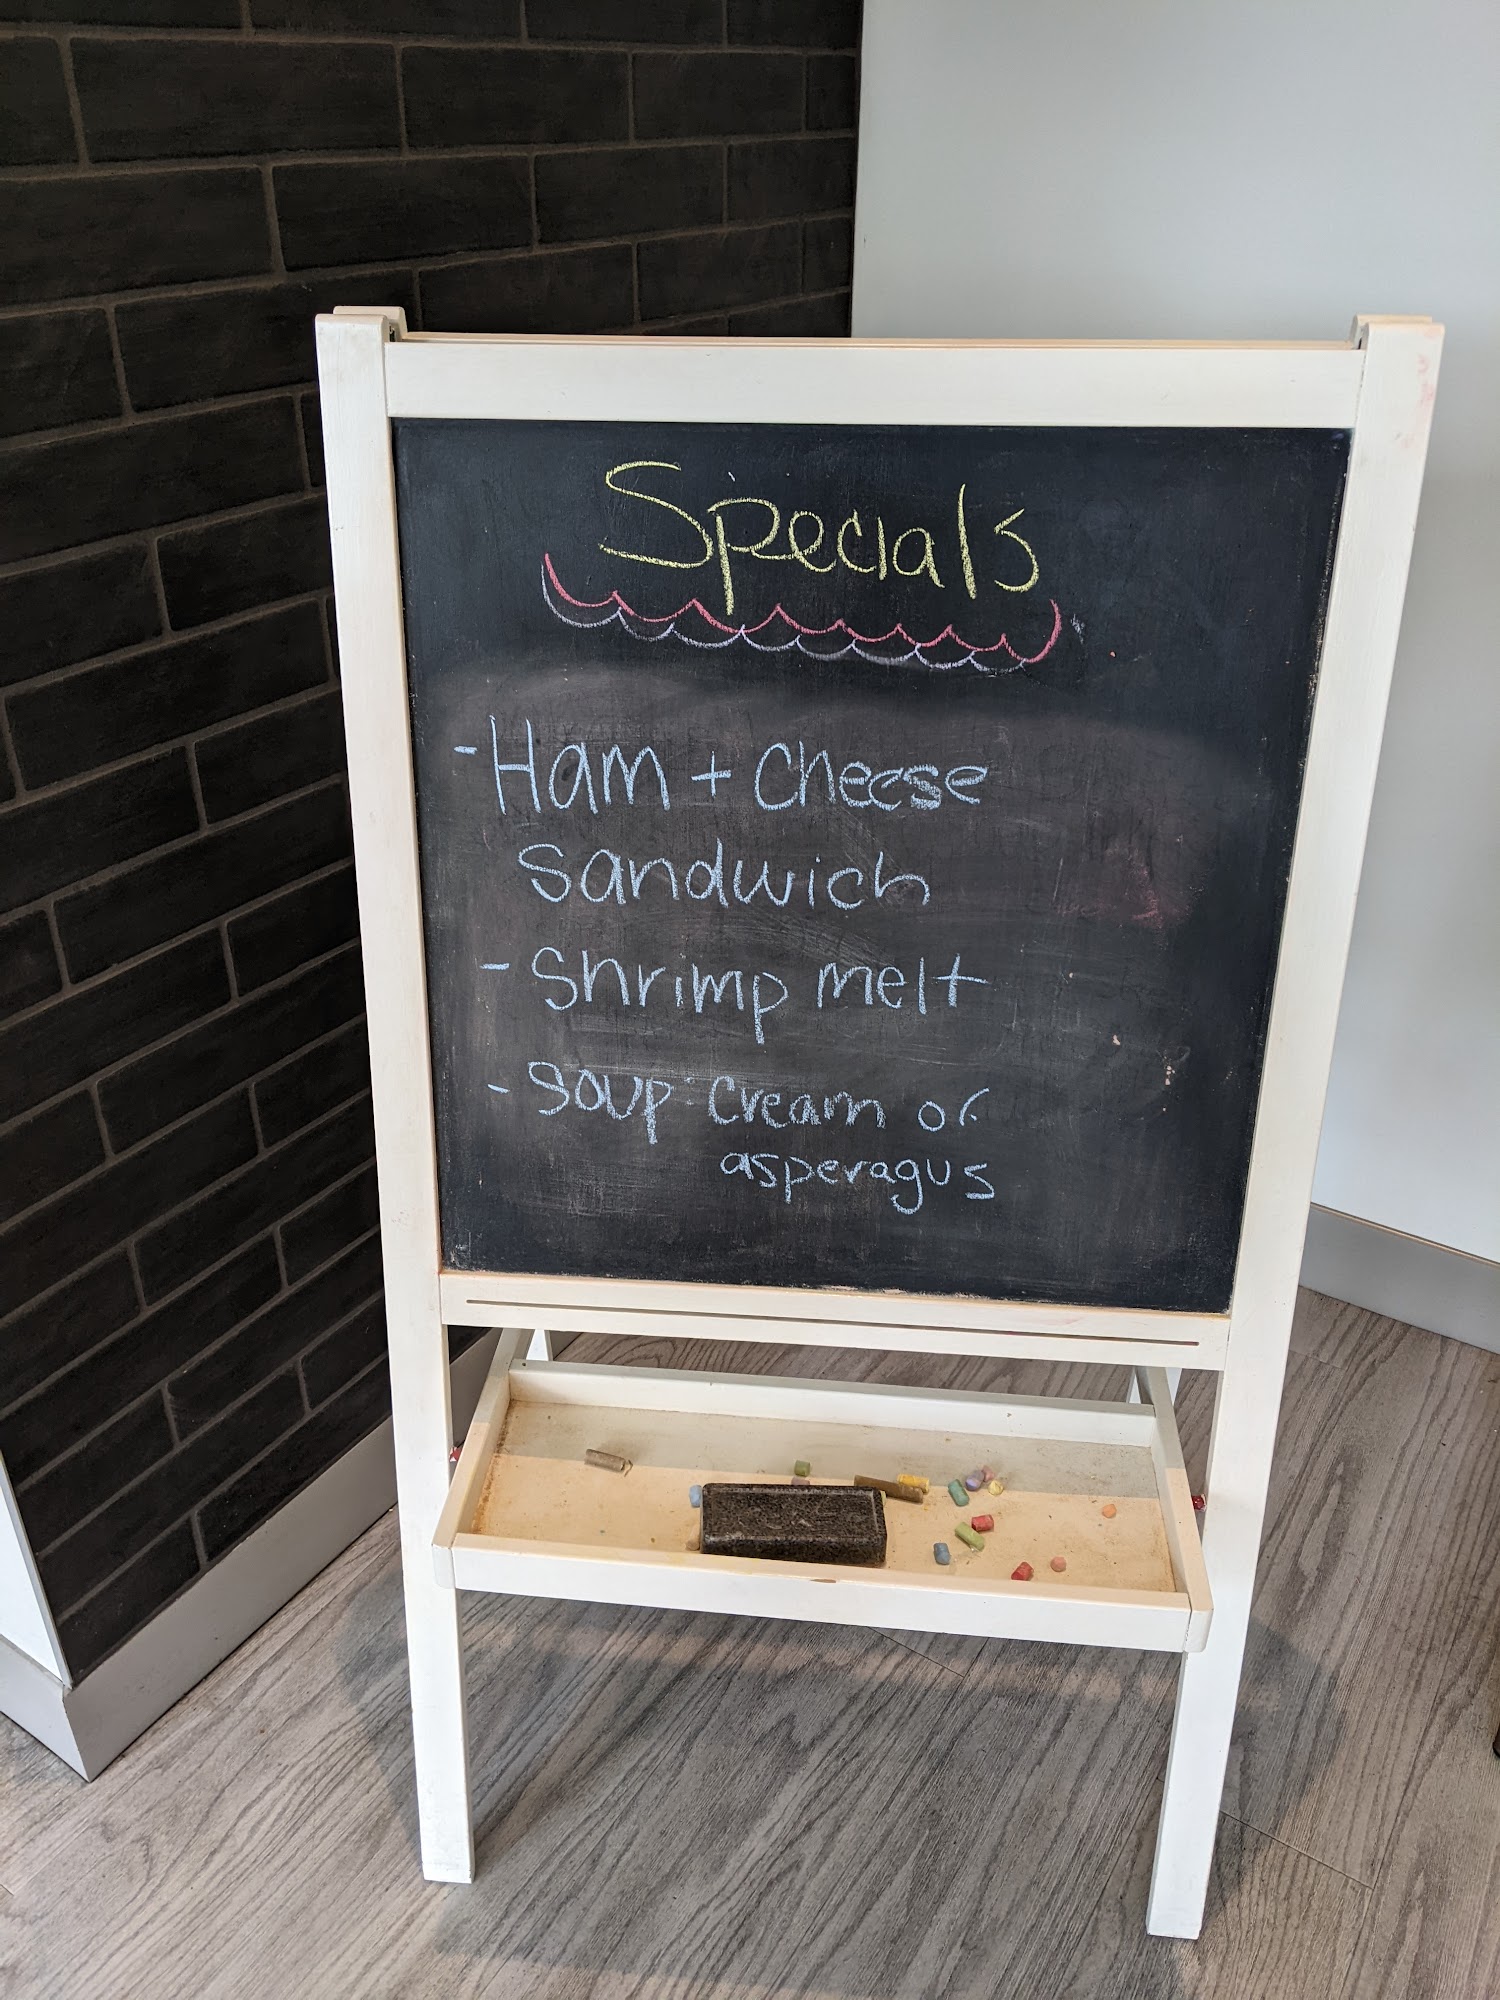 Specials
- Ham + Cheese
sandwich
- shrimp melt
- soup: cream of
asperagus